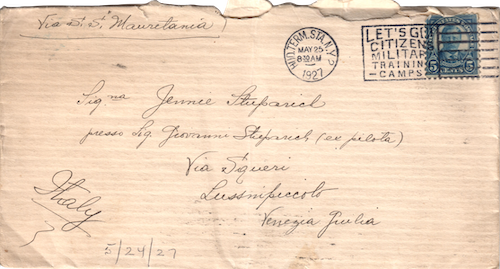 Via S. S. Mauretania
HUD. TERM. STA. N.Y.
MAY 25
8 30 AM
1927
LET'S GO!
CITIZENS
MILITARY
TRAINING
CAMPS
5 5
Sig na Jennie Stuparich
presso Sig. Giovanni Stuparich (ex pilota)
Via Squeri
Lussinpiccolo
Venezia Giulia
Italy
5/24/27